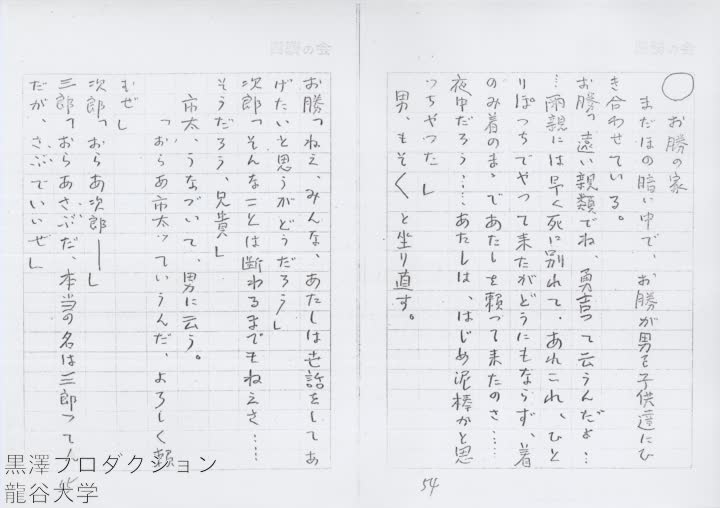 ◯ お勝の家
まだほの暗い中で、お勝が男を子供達にひ
き合わせている。
お勝「遠い親類でね、勇吉って云うんだよ…
…両親には早く死に別れて、あれこれ、ひと
りぽっちでやって来たがどうにもならず、着
のみ着のまゝであたしを頼って来たのさ……
夜中だろう……あたしは、はじめ泥棒かと思
っちゃった」
男、もそ〱と坐り直す。
54
お勝「ねえ、みんな、あたしは世話をしてあ
げたいと思うがどうだろう」
次郎「そんなことは断わるまでもねえさ……
そうだろう、兄貴」
市太、うなづいて、男に云う。
「おらあ市太っていうんだ、よろしく頼
むぜ」
次郎「おらあ次郎――」
三郎「おらあさぶだ、本当の名は三郎ってん
だが、さぶでいいぜ」
黒澤プロダクション
龍谷大学